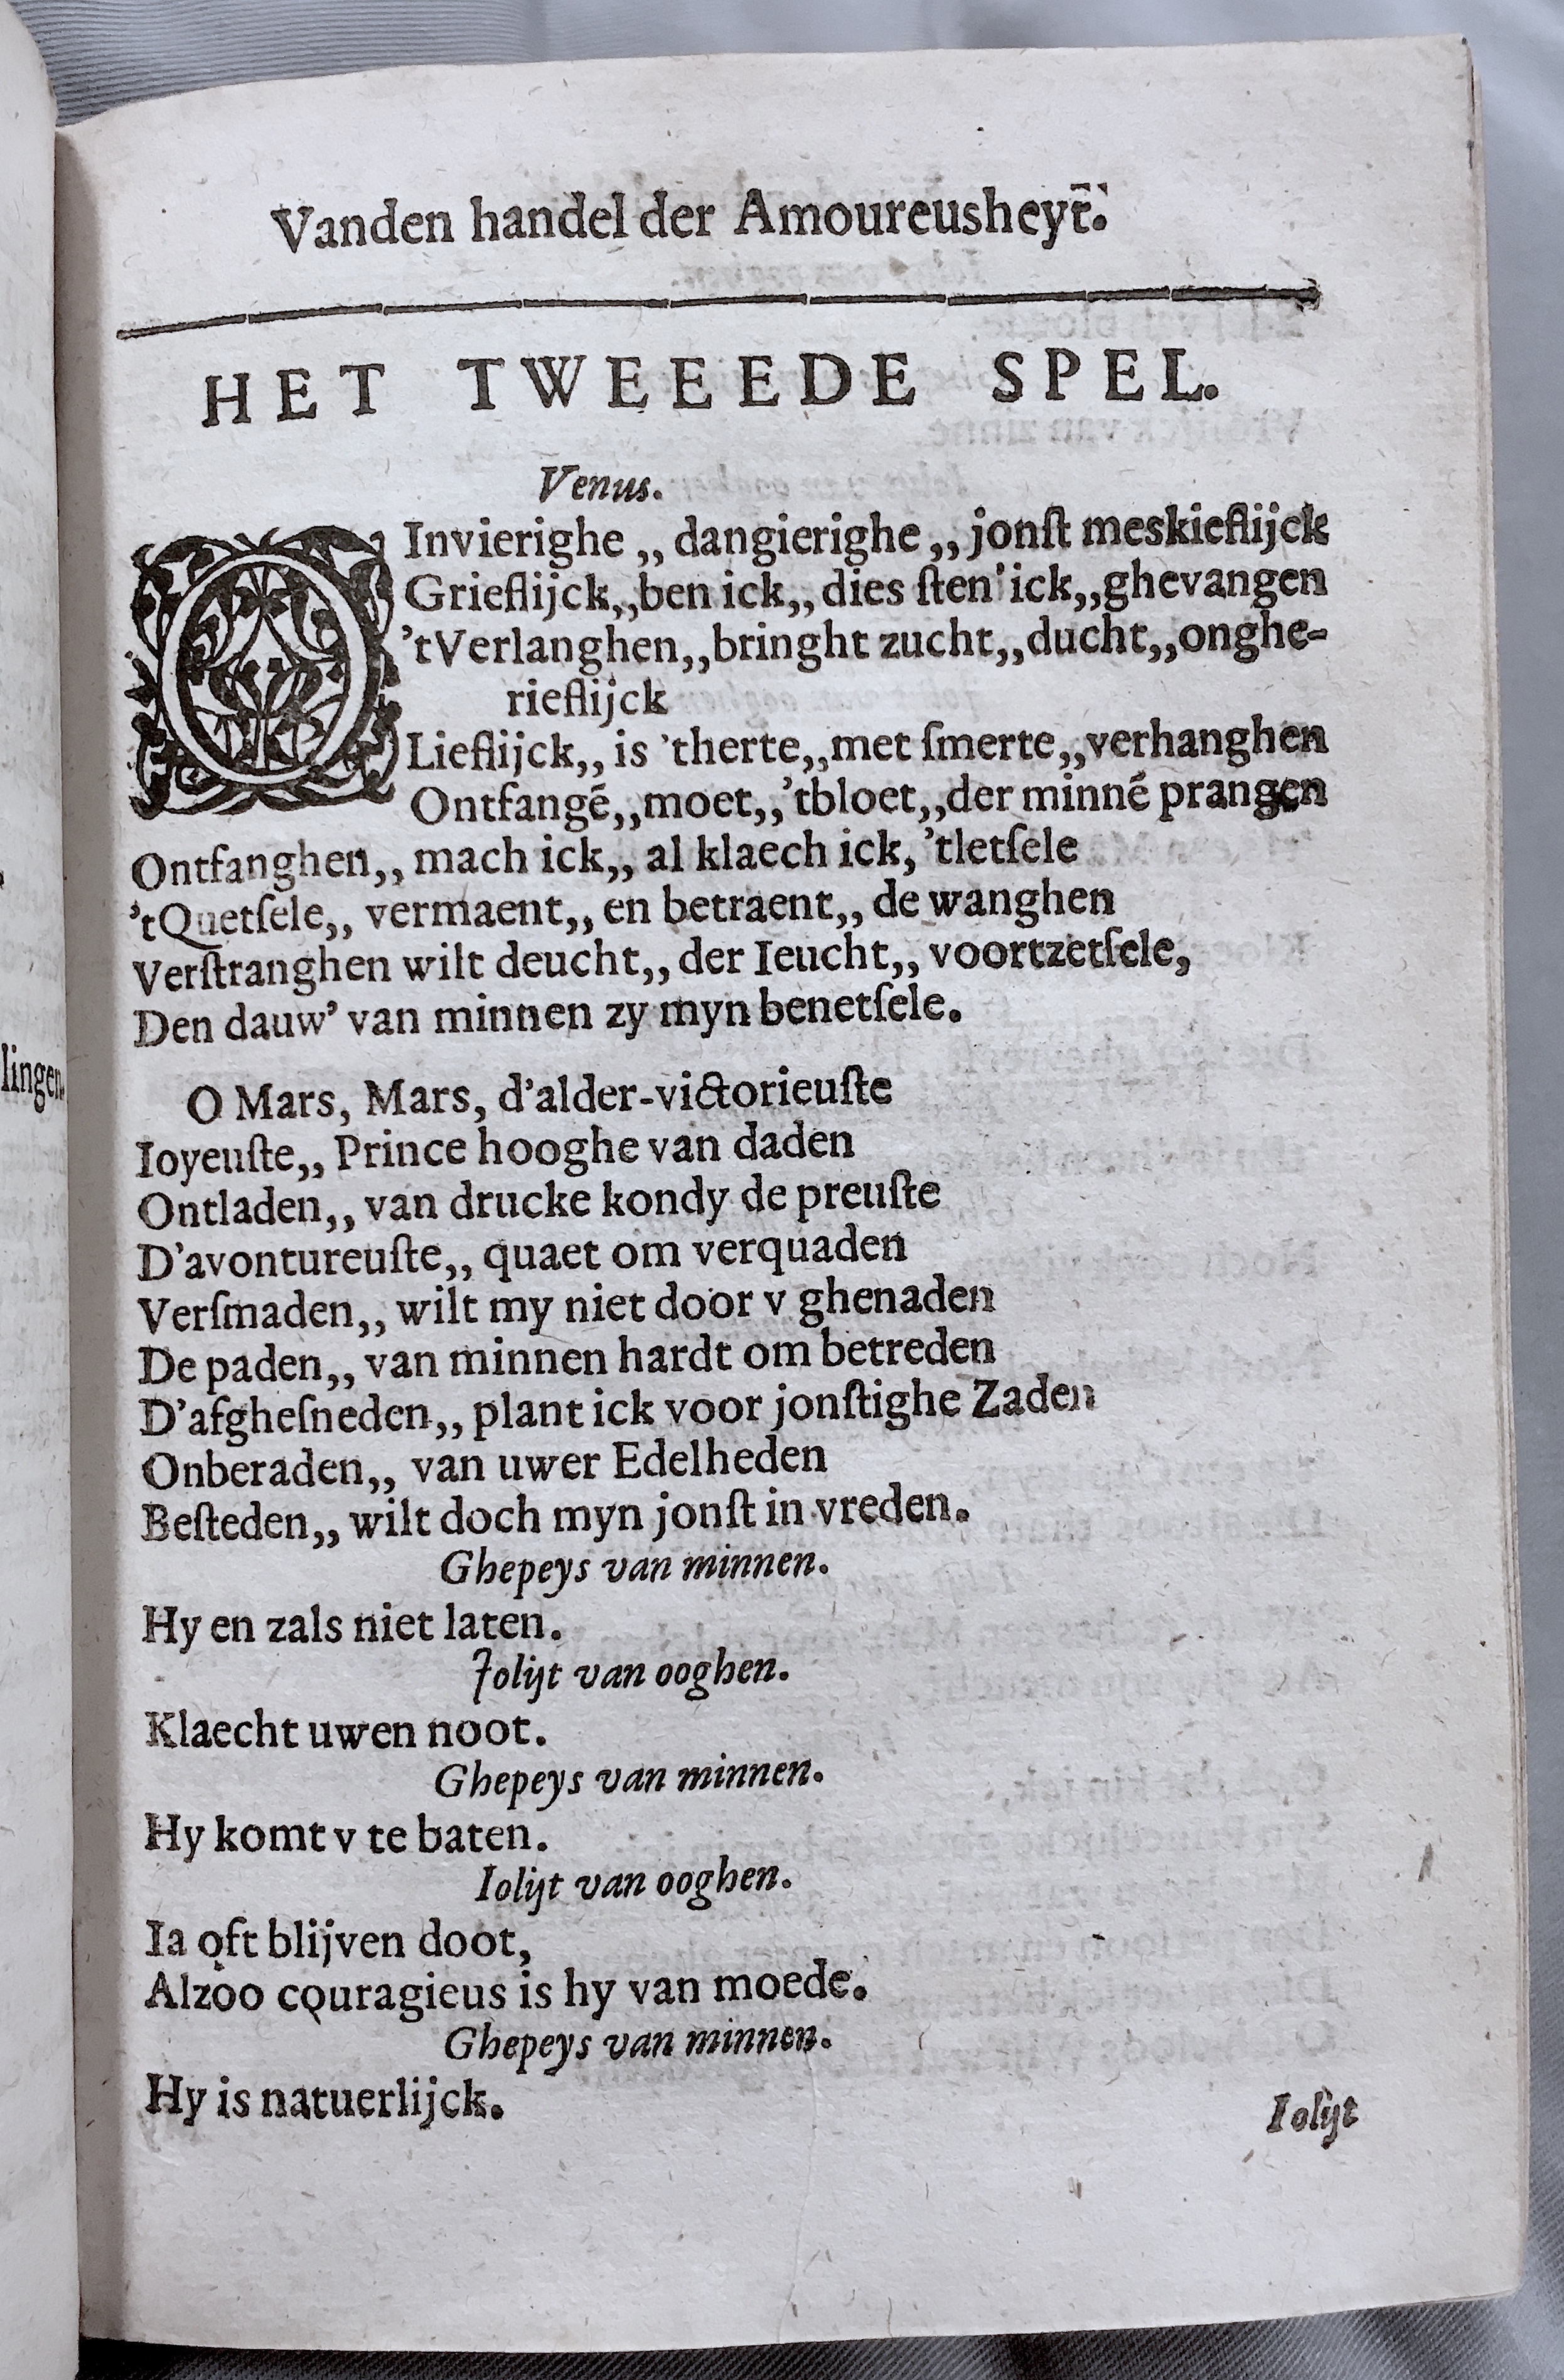 lingen.
Vanden handel der Amoureusheyt.
HET TWEEEDE SPEL.
Venus.
OInvierighe ,, dangierighe ,, jonſt meskieflijck
Grieflijck,,ben ick,, dies ſten'ick,,ghevangen
'tVerlanghen,,bringht zucht,,ducht,,onghe-
rieflijck
Lieflijck,, is 'therte,,met ſmerte,,verhanghen
Ontfangé,,moet,,'tbloet,,der minné prangen
Ontfanghen,, mach ick,, al klaech ick, 'tletſele
'tQuetſele,, vermaent,, en betraent,, de wanghen
Verſtranghen wilt deucht,, der Ieucht,, voortzetſele,
Den dauw' van minnen zy myn benetſele.
O Mars, Mars, d'alder-victorieuſte
Ioyeuſte,, Prince hooghe van daden
Ontladen,, van drucke kondy de preuſte
D'avontureuſte,, quaet om verquaden
Verſmaden,, wilt my niet door v ghenaden
De paden,, van minnen hardt om betreden
D'afgheſneden,, plant ick voor jonſtighe Zaden
Onberaden,, van uwer Edelheden
Beſteden,, wilt doch myn jonſt in vreden.
Ghepeys van minnen.
Hy en zals niet laten.
Jolijt van ooghen.
Klaecht uwen noot.
Ghepeys van minnen.
Hy komt v te baten.
Iolijt van ooghen.
Ia oft blijven doot,
Alzoo couragieus is hy van moede.
Ghepeys van minnen.
Hy is natuerlijck.
Iolijt